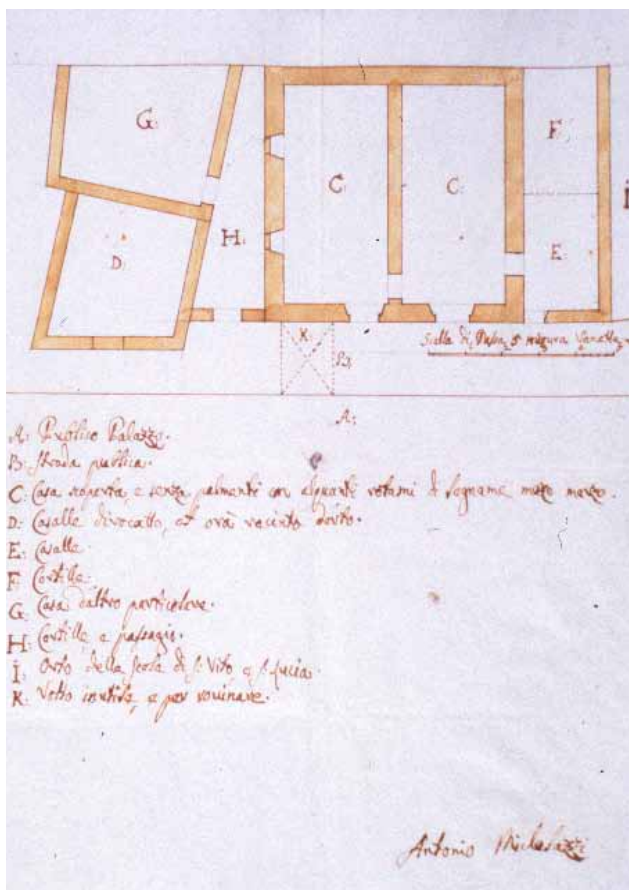 G:
F:
C:
C:
I
H:
D:
E:
K:
B:
Scalla di Passa 5 misura Veneta
A:
A: Publico Palazzo.
B: Strada publica.
C: Casa scoperta, e senza palmenti con alquanti rotami di legname mezo marzo.
D: Casalle diroccatto, et ora recinto d'orto.
E: Casalle.
F: Cortille.
G: Casa d'altro particolare.
H: Cortille, e passagio.
I: Orto della scola di S. Vito e S. Lucia.
K: Volto inutile, e per rovinare.
Antonio Michelazzi